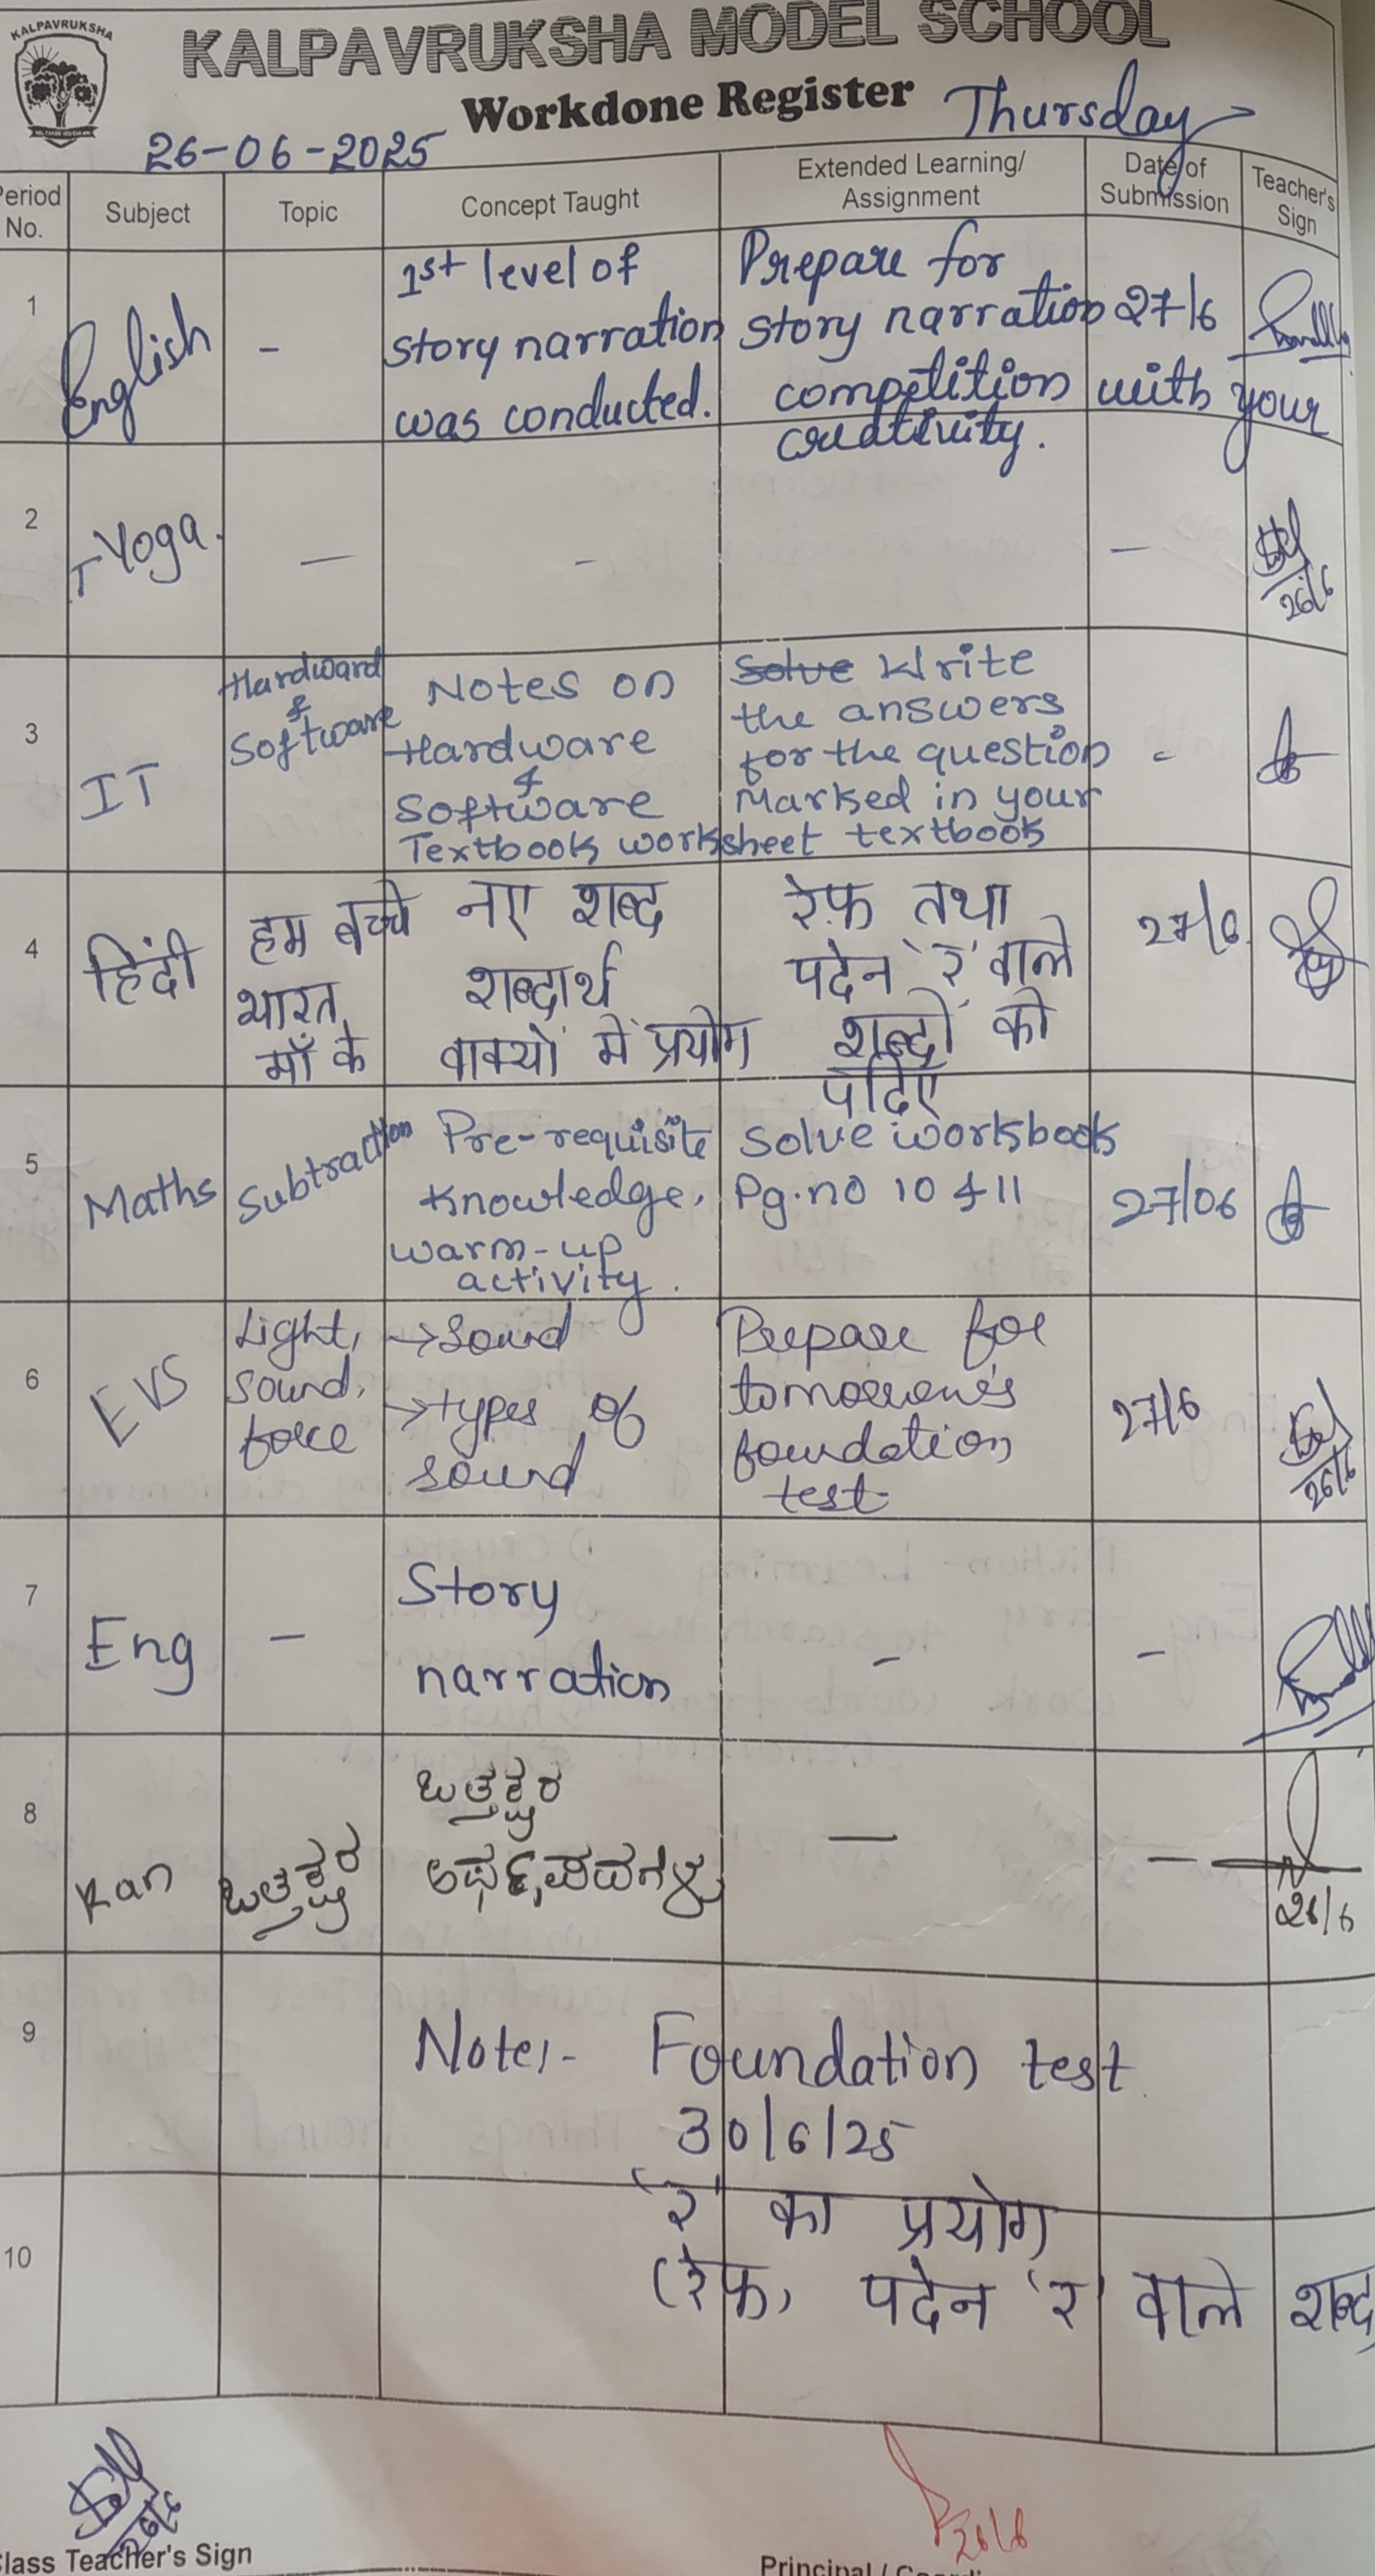 KALPAVRUKSHA
KALPAVRUKSHA MODEL SCHOOL
Workdone Register Thursday
26-06-2025
Period No. Subject Topic Concept Taught Extended Learning/ Assignment Date of Submission Teacher's Sign
1 English -
1st level of
story narration
was conducted.
Prepare for
story narration 27/6
competition with your
creativity.
2 Yoga. — - —
26/6
3 IT
Hardward
&
Software
Notes on
Hardware
&
Software
Textbook worksheet
Solve Write
the answers
for the question -
Marked in your
textbook
4 हिंदी
हम बच्चे
भारत
माँ के
नए शब्द
शब्दार्थ
वाक्यों में प्रयोग
रेफ़ तथा
पदेन 'र' वाले
शब्दों को
पढिए
27/6.
5 Maths Subtraction
Pre-requisite
knowledge,
warm-up
activity.
Solve workbook
Pg.no 10 & 11
27/06
6 EVS
Light,
sound,
force
→ sound
→ types of
sound
Prepare for
tomorrow's
foundation
test
27/6
26/6
7 Eng -
Story
narration
- -
8 Kan ಒತ್ತಕ್ಷರ
ಒತ್ತಕ್ಷರ
— —
26/6
9
Note:- Foundation test
30/6/25
10
'र' का प्रयोग
(रेफ, पदेन 'र' वाले शब्द
26/6
Class Teacher's Sign
26/6
Principal /